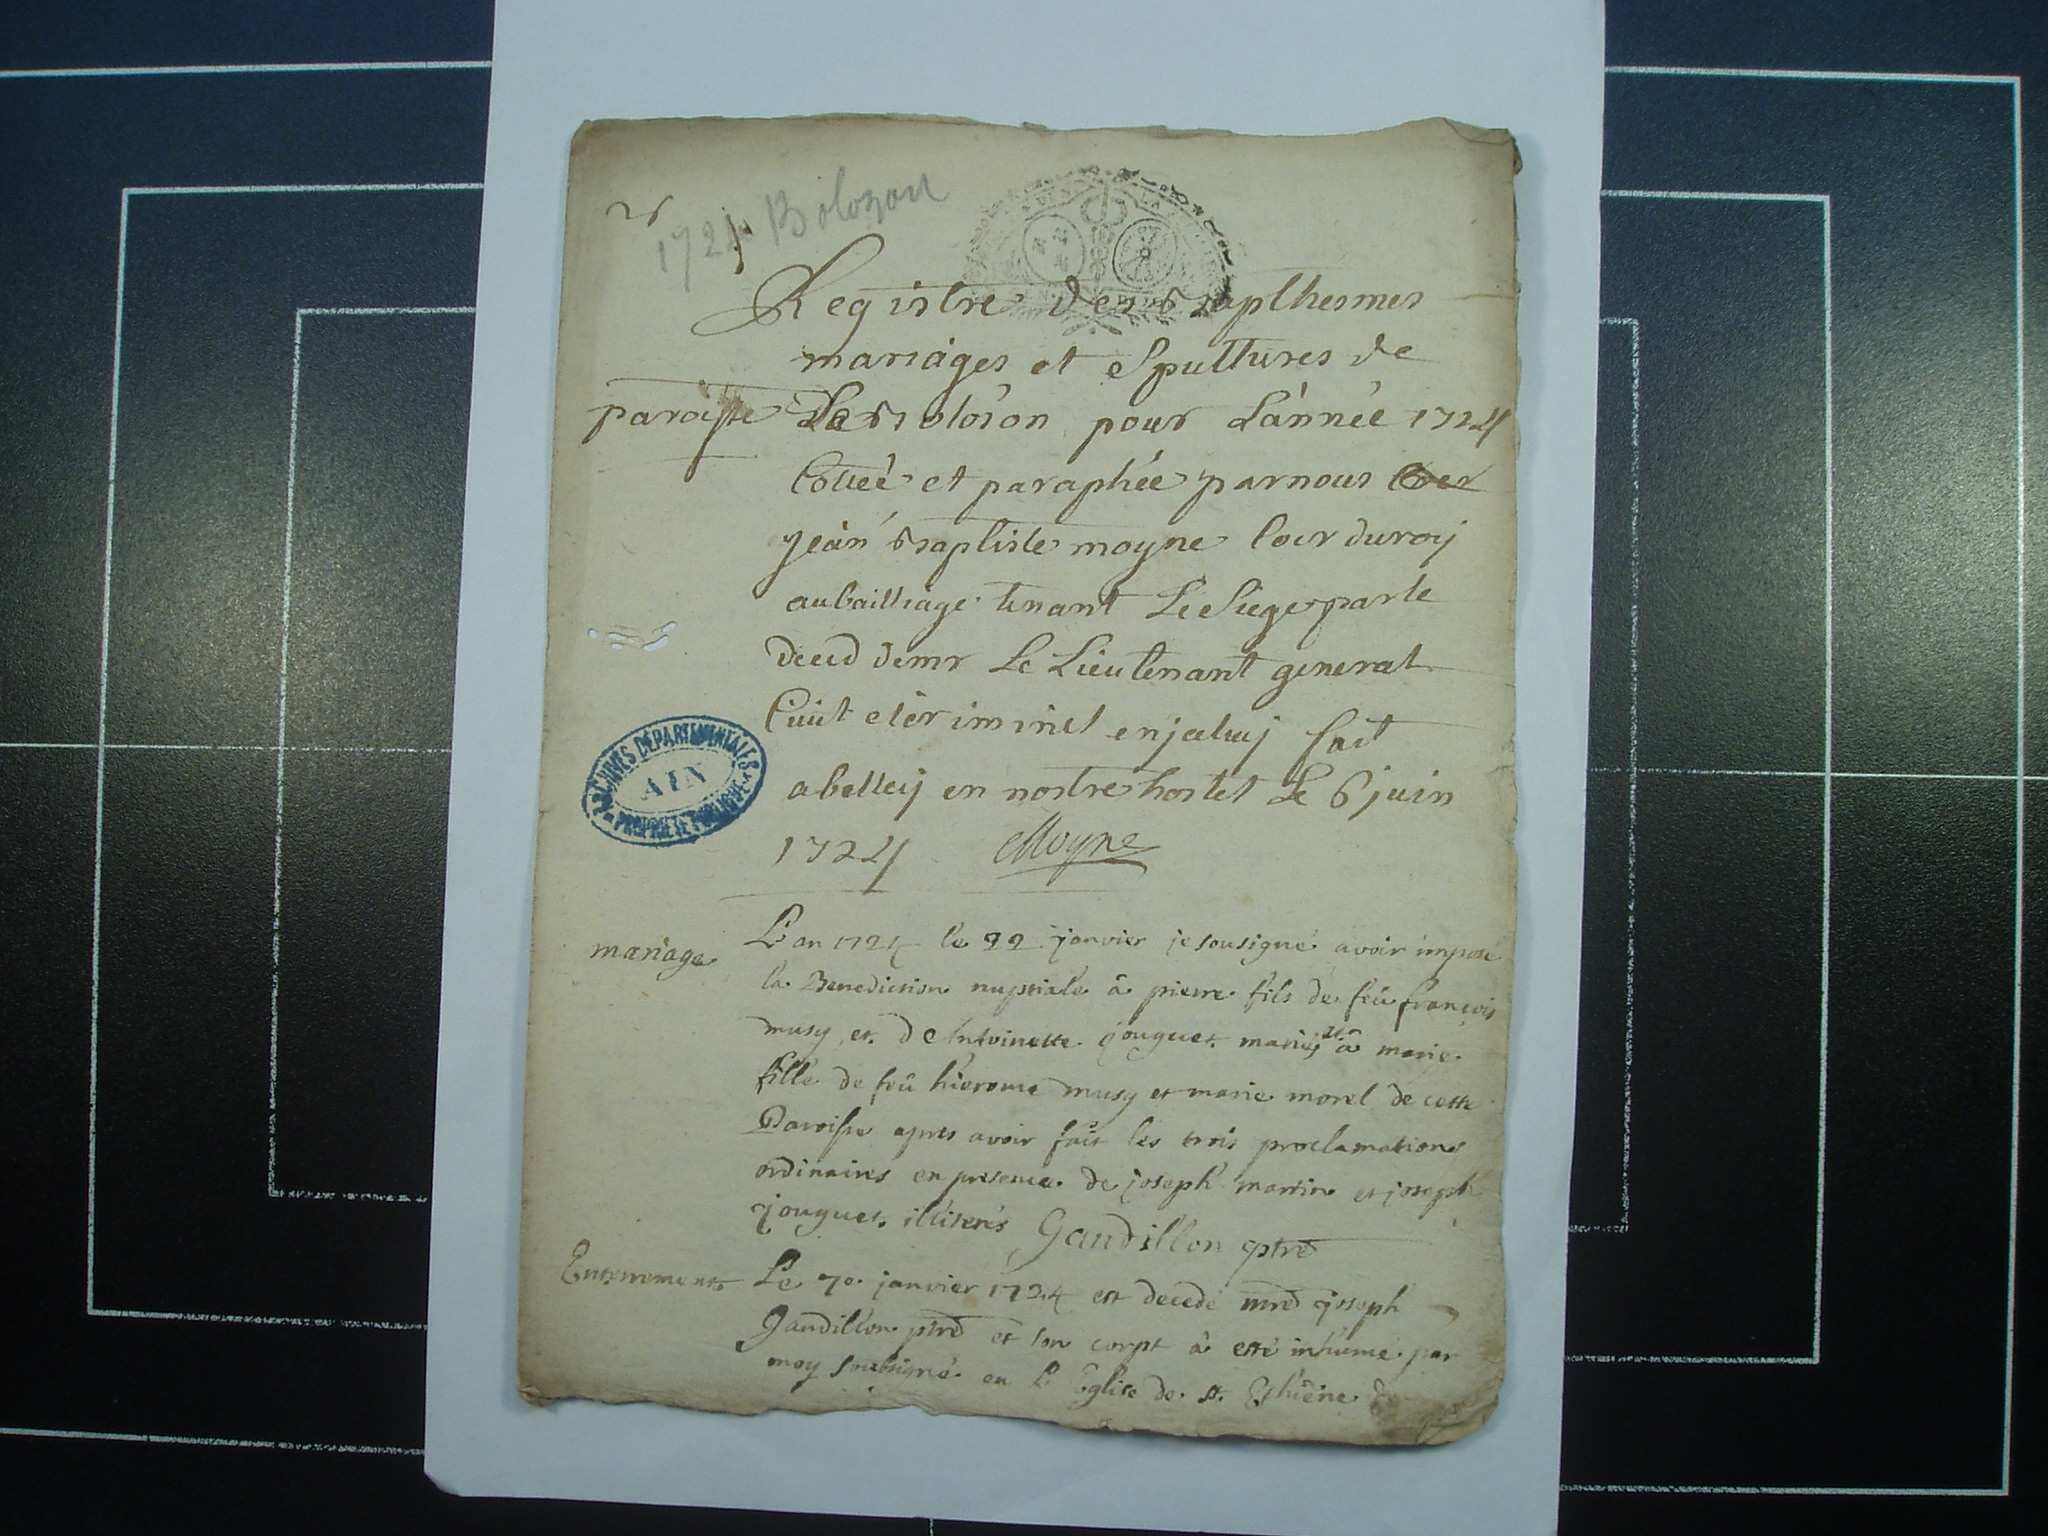 1724 Bolozon
Registre des Bapthesmes
mariages et Spultures de
paroisse De Bolozon pour Lànnéé 1724
Cottéé et paraphéé parnous
jeàn Baptiste moyne Coer duroy
aubailliage tenant Le Siege parle
deced demr Le Lieutenant general
Civil et criminel enjceluy fait
abelley en nostre hostel Le 6 juin
1724 Moyne
ARCHIVES DÉPARTEMENTALES
AIN
PROPRIÉTÉ PUBLIQUE
mariage
L'an 1724 le 22 janvier je sousigné avoir imposé
la Benediction nuptiale â pierre fils de feû françois
musy et d'Antoinette jouguet mariés â marie
fille de feû hierome musy et marie morel de cette
Paroisse apres avoir fait les trois proclamations
ordinaires en presence de joseph martin et joseph
jouguet illiterés Gaudillon ptre
Enterrements
Le 30 janvier 1724 est decedé mre joseph
Gaudillon ptre et son corpt â esté inhumé par
moy soubsigné en l'Eglise de st. Esthiene